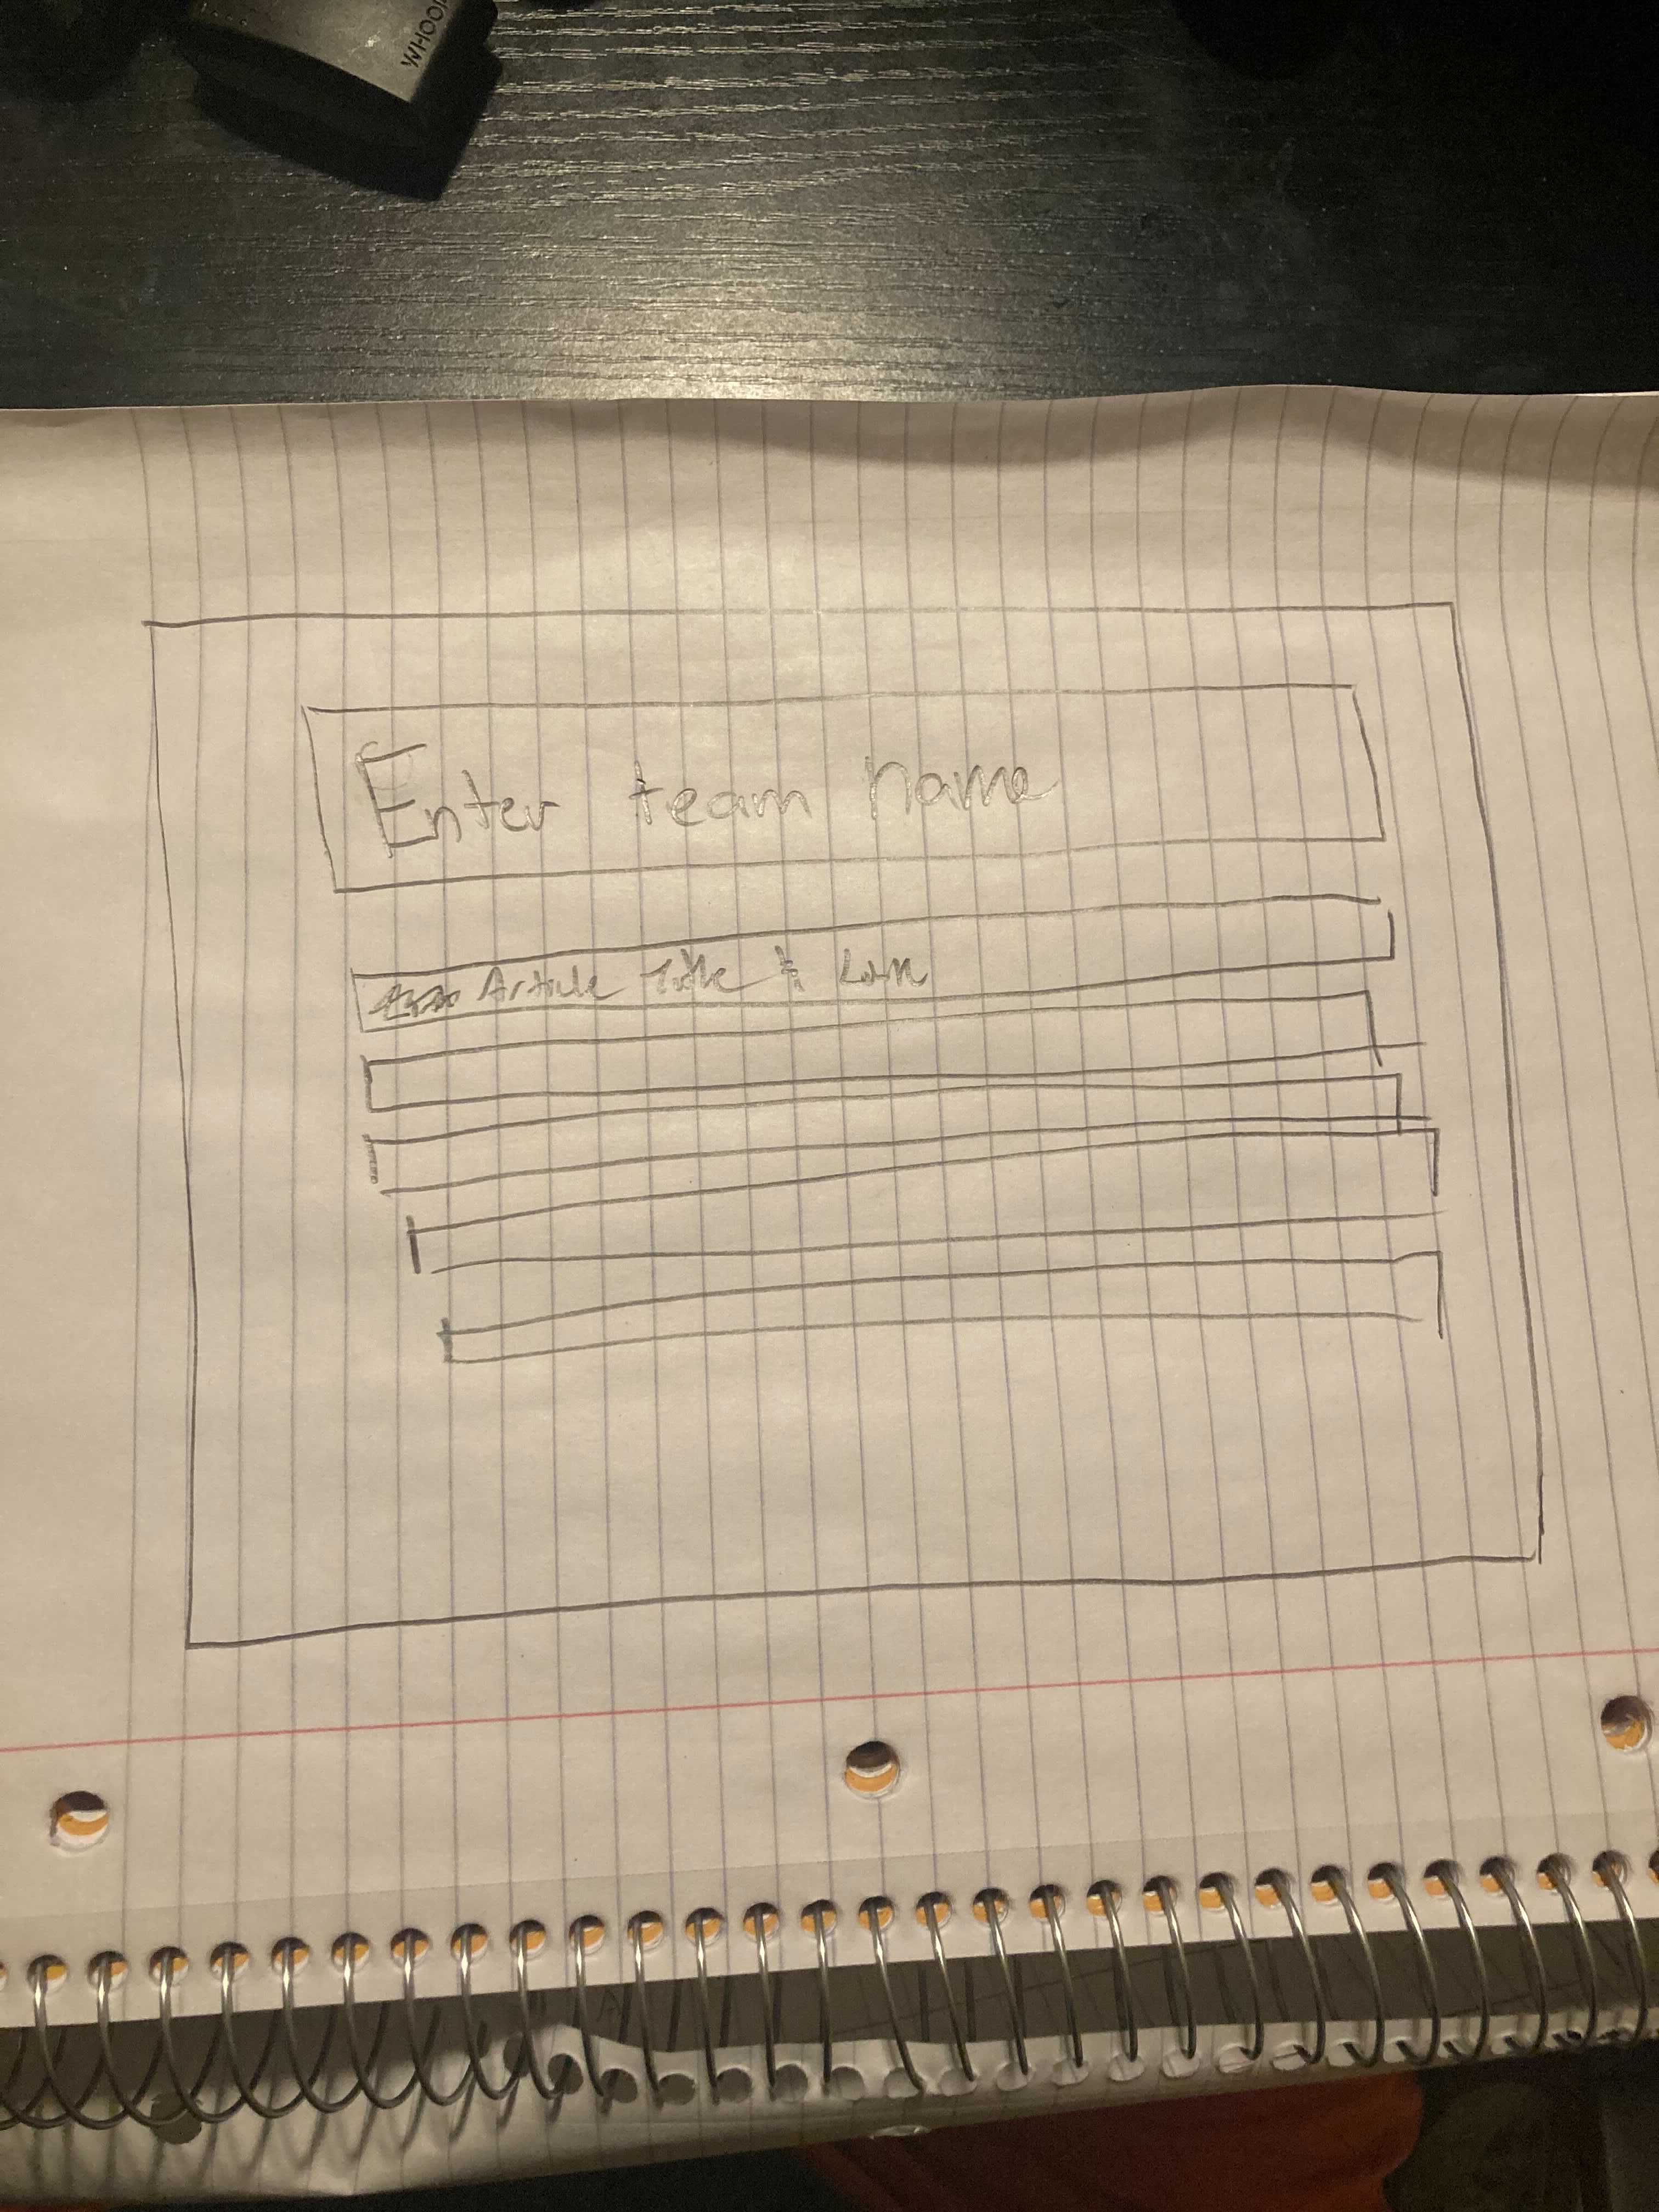 WHOOP
Enter team name
Article Title & Link